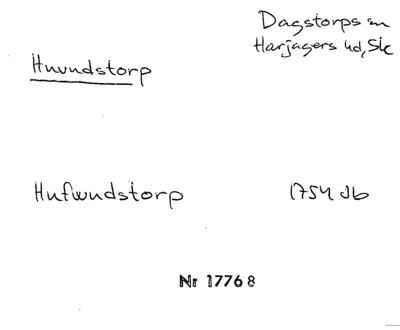 Dagstorps sn
Harjagers hd, Sk
Huvudstorp
Hufwudstorp 1754 Jb
Nr 17768